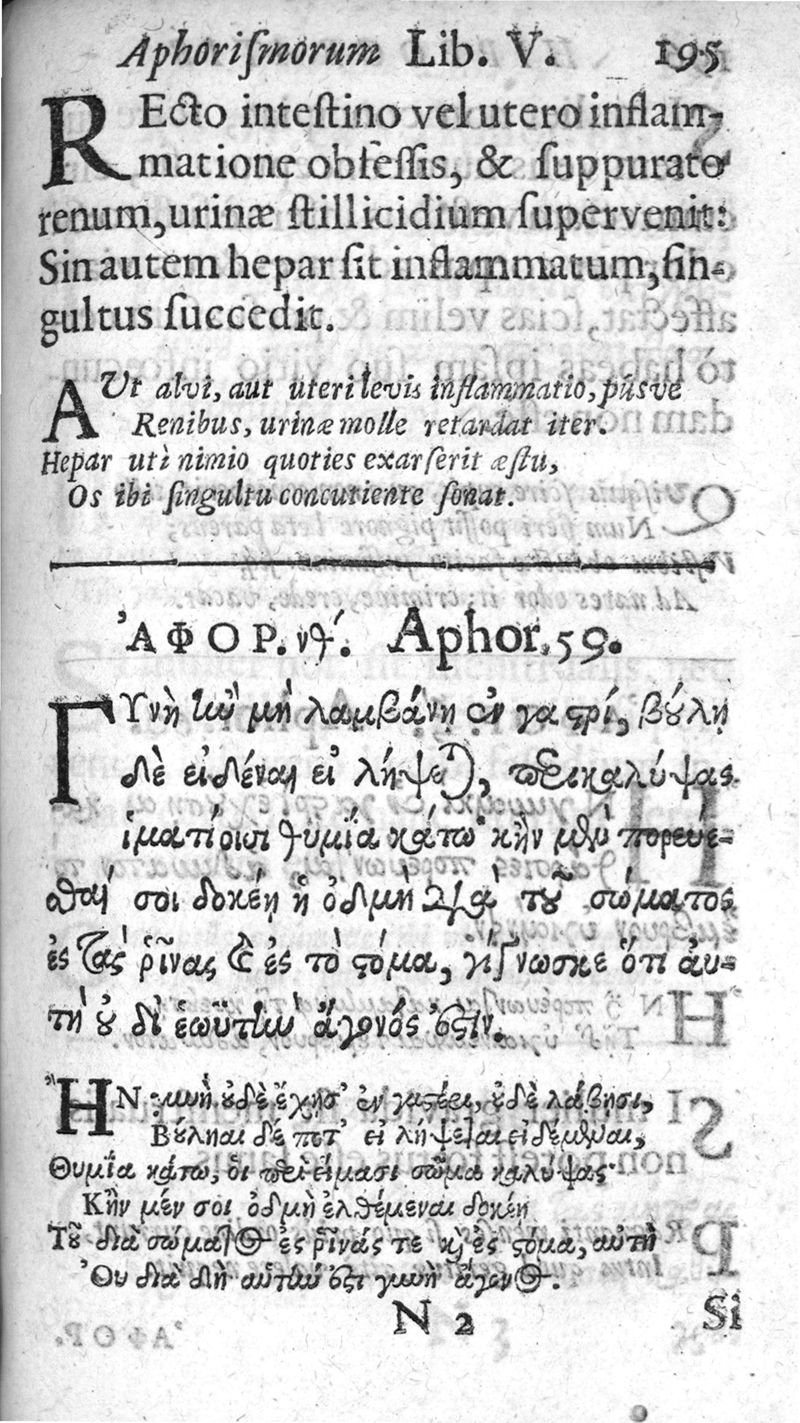 Aphoriſmorum Lib. V. 195
REcto inteſtino vel utero inflam-
matione obſeſſis, & ſuppurato
renum, urinæ ſtillicidium ſupervenit:
Sin autem hepar ſit inflammatum, ſin-
gultus ſuccedit.
AUt alvi, aut uteri levis inflammatio, pűsve
Renibus, urinæ molle retardat iter.
Hepar utì nimio quoties exarſerit æſtu,
Os ibi ſingultu concutiente ſonat.
ἈΦΟΡ. νθ΄. Aphor. 59.
ΓΥνὴ ἢν μὴ λαμβάνῃ ἐν γαστρί, βούλῃ
δὲ εἰδέναι εἰ λήψεται, περικαλύψας
ἱματίοισι θυμία κάτω· κἢν μὲν πορεύε-
σθαί σοι δοκέῃ ἡ ὀδμὴ διὰ τοῦ σώματος
ἐς τὰς ῥῖνας καὶ ἐς τὸ στόμα, γίγνωσκε ὅτι αὐ-
τὴ οὐ δι ἑωϋτὴν ἄγονός ἐστιν.
ἮΝ γυνὴ οὐδὲ ἔχησ' ἐν γαστέρι, οὐδὲ λάβῃσι,
Βούληαι δέ ποτ' εἰ λήψεται εἰδέμεναι,
Θυμία κάτω, δι περὶ εἵμασι σῶμα καλύψας·
Κἢν μέν σοι ὀδμὴ ἐλθέμεναι δοκέῃ
Τοῦ διὰ σώματος ἐς ῥῖνάς τε καὶ ἐς στόμα, αὐτὴ
Ὀυ διὰ δὴ αὑτὴν ἐστι γυνὴ ἄγονος.
N 2 Si